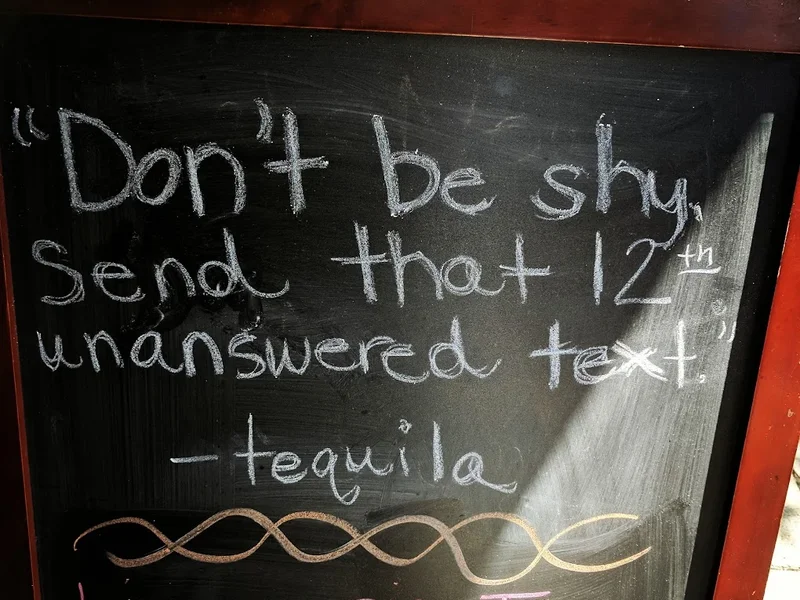 "Don't be shy,
Send that 12th
unanswered text."
-tequila